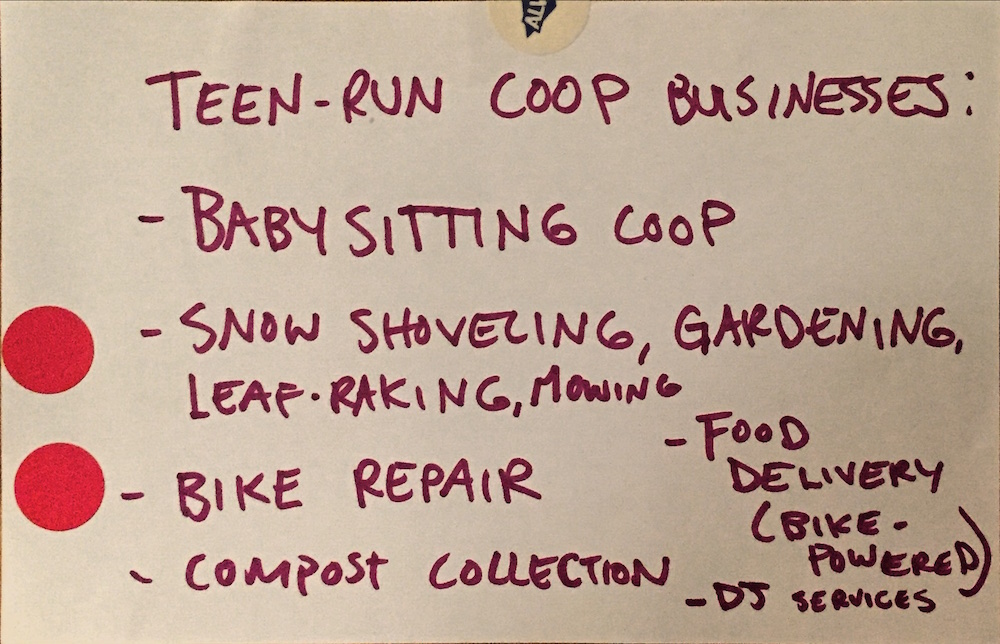 TEEN-RUN COOP BUSINESSES:
- BABYSITTING COOP
- SNOW SHOVELING, GARDENING,
LEAF-RAKING, MOWING
- BIKE REPAIR
- COMPOST COLLECTION
- FOOD
DELIVERY
(BIKE-
POWERED)
- DJ SERVICES